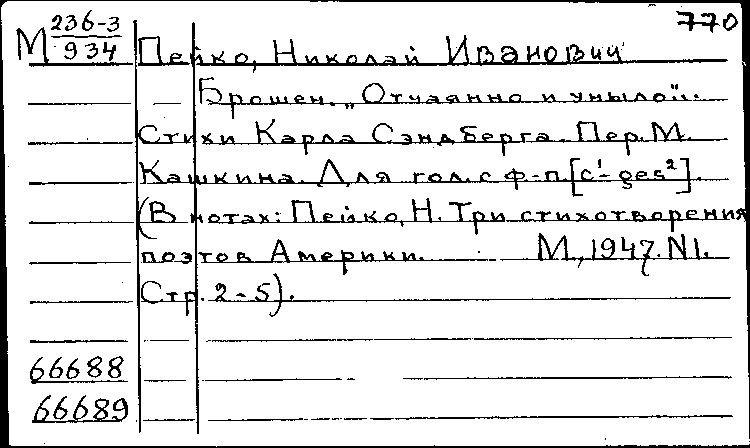 770
М 236-3
934
Пейко, Николай Иванович
Брошен. „Отчаянно и уныло".
Стихи Карла Сэндберга. Пер. М.
Кашкина. Для гол. с ф-п [c¹-ges²].
(В нотах: Пейко, Н. Три стихотворения
поэтов Америки. М., 1947. N1.
Стр. 2-5).
66688
66689